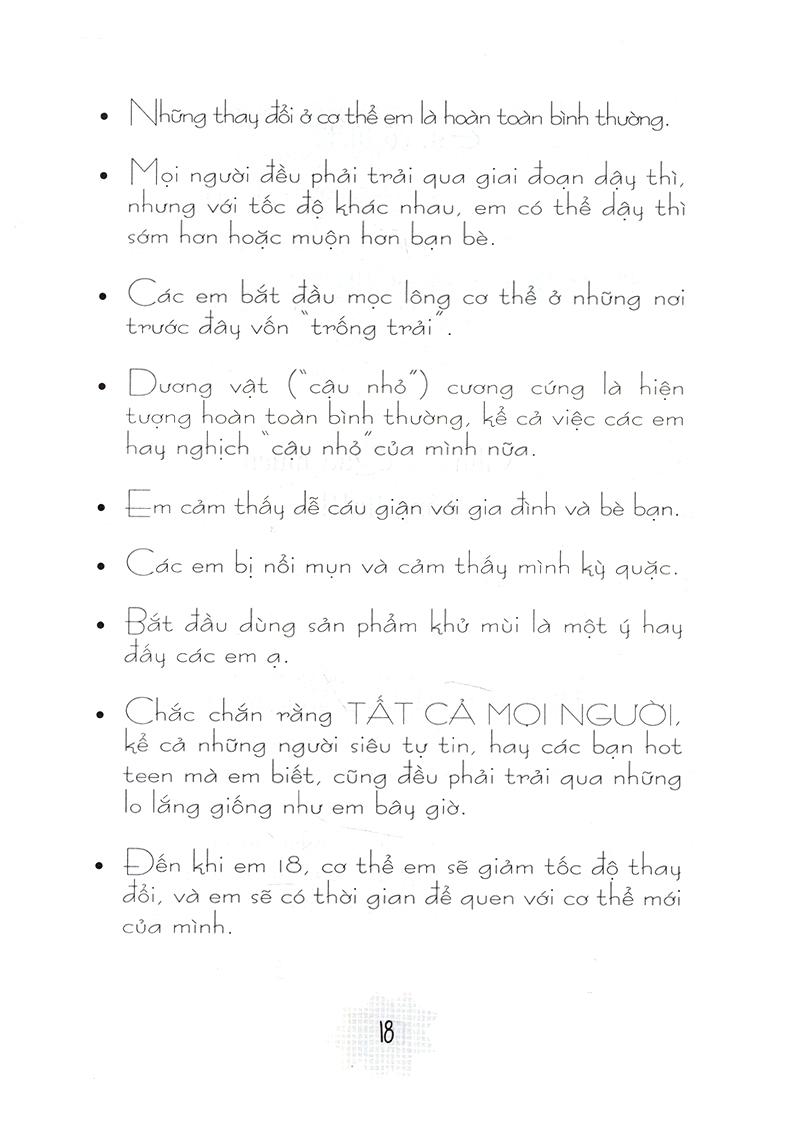 • Những thay đổi ở cơ thể em là hoàn toàn bình thường.
• Mọi người đều phải trải qua giai đoạn dậy thì,
nhưng với tốc độ khác nhau, em có thể dậy thì
sớm hơn hoặc muộn hơn bạn bè.
• Các em bắt đầu mọc lông cơ thể ở những nơi
trước đây vốn “trống trải”.
• Dương vật (“cậu nhỏ”) cương cứng là hiện
tượng hoàn toàn bình thường, kể cả việc các em
hay nghịch “cậu nhỏ”của mình nữa.
• Em cảm thấy dễ cáu giận với gia đình và bè bạn.
• Các em bị nổi mụn và cảm thấy mình kỳ quặc.
• Bắt đầu dùng sản phẩm khử mùi là một ý hay
đấy các em ạ.
• Chắc chắn rằng TẤT CẢ MỌI NGƯỜI,
kể cả những người siêu tự tin, hay các bạn hot
teen mà em biết, cũng đều phải trải qua những
lo lắng giống như em bây giờ.
• Đến khi em 18, cơ thể em sẽ giảm tốc độ thay
đổi, và em sẽ có thời gian để quen với cơ thể mới
của mình.
18